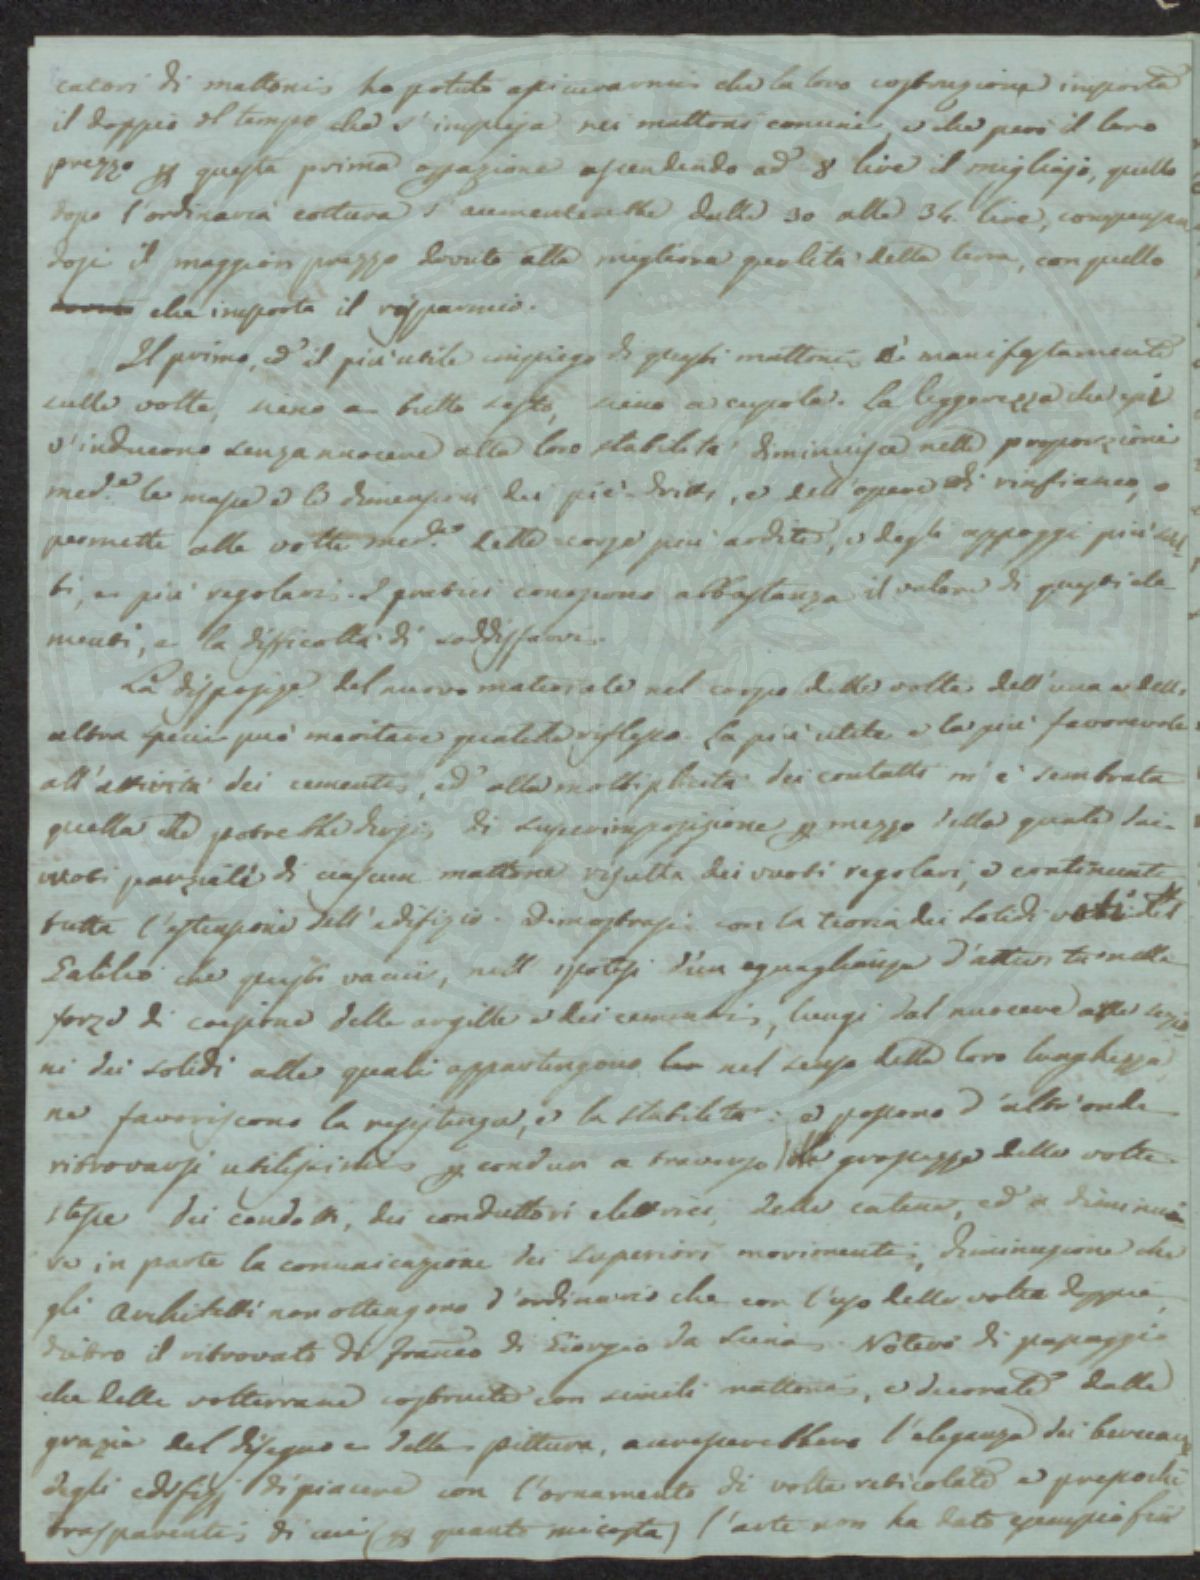 catori di mattoni ho potuto assicurarmi che la loro costruzione importa
il doppio del tempo che s'impiega nei mattoni comuni, e che però il loro
prezzo per questa prima operazione ascendendo ad 8 lire il migliajo, quello
dopo l'ordinaria cottura s'aumenterebbe dalle 30 alle 34 lire, compensan
dosi il maggior prezzo dovuto alla migliore qualità della terra, con quello
che importa il risparmio.
Il primo, ed il più utile impiego di questi mattoni è manifestamente
sulle volte, sieno a tutto sesto, sieno a cupola. La leggerezza che essi
v'inducono senza nuocere alla loro stabilità diminuisce nelle proporzioni
med.e le masse e le dimensioni dei piè-dritti, e dell'opere di rinfianco, e
permette alle volte med.e delle corde più ardite, e degli appoggi più
ti, e più regolari. I pratici conoscono abbastanza il valore di questi ele
menti, e la difficoltà di soddisfarvi.
La disposize del nuovo materiale nel corpo delle volte dell'una e dell'
altra specie può meritare qualche riflesso. La più utile e la più favorevole
all'attività dei cementi, ed alla moltiplicità dei contatti m'è sembrata
quella che potrebbe dirsi di superimposizione per mezzo della quale dai
vuoti parziali di ciascun mattone risulta dei vuoti regolari, e continuati
tutta l'estensione dell'edifizio. Dimostrasi con la teoria dei solidi vuoti del
Galileo che questi vacui, nell'ipotesi d'un eguaglianza d'attività nella
forza di coesione delle argille e dei cementi, lungi dal nuocere alle sezio
ni dei solidi alle quali appartengono nel senso della loro lunghezza,
ne favoriscono la resistenza, e la stabilità: e possono d'altronde
ritrovarsi utilissimi per condur a traverso la grossezza delle volte
stesse dei condotti, dei conduttori elettrici, delle catene, ed a diminui
re in parte la comunicazione dei superiori movimenti, diminuzione che
gli Architetti non ottengono d'ordinario che con l'uso delle volte doppie,
dietro il ritrovato di Franco di Giorgio da Siena. Noterò di passaggio
che delle volterrane costruite con simili mattoni, e decorate dalle
grazie del disegno e della pittura, accrescerebbero l'eleganza dei
degli edifizj di piacere con l'ornamento di volte reticolate e pressochè
trasparenti di cui (per quanto mi costa) l'arte non ha dato esempio fin